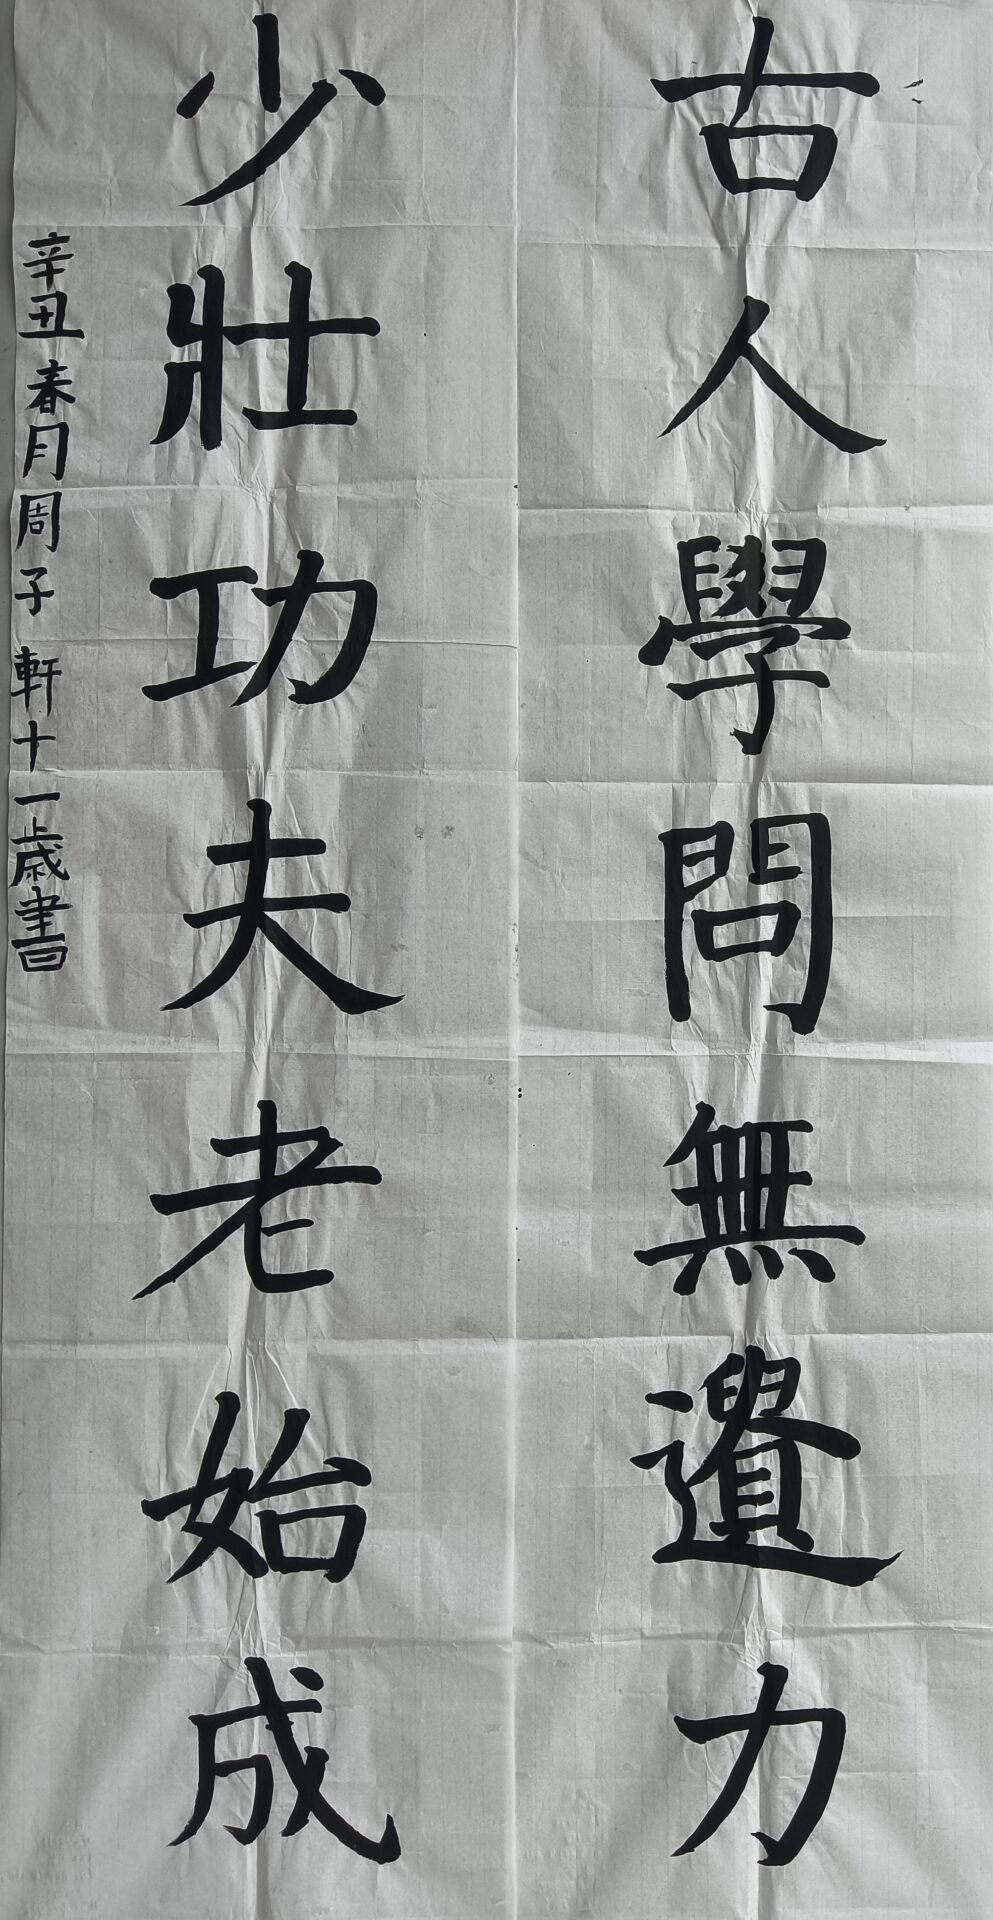 古人學問無遺力
少壯功夫老始成
辛丑春月周子軒十一歲書